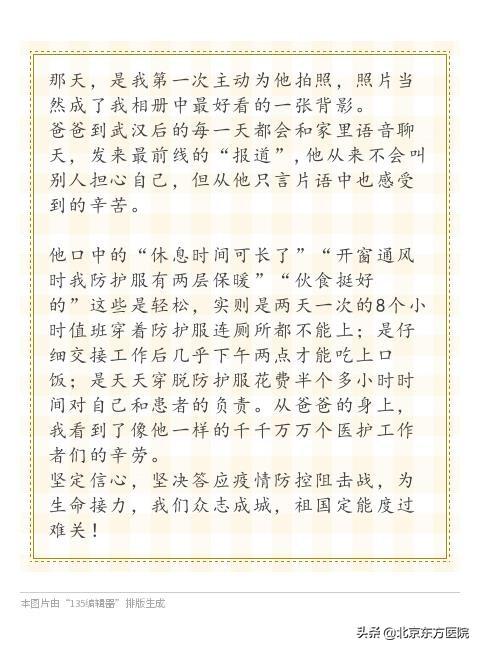 那天，是我第一次主动为他拍照，照片当
然成了我相册中最好看的一张背影。
爸爸到武汉后的每一天都会和家里语音聊
天，发来最前线的“报道”,他从来不会叫
别人担心自己，但从他只言片语中也感受
到的辛苦。
他口中的“休息时间可长了”“开窗通风
时我防护服有两层保暖”“伙食挺好
的”这些是轻松，实则是两天一次的8个小
时值班穿着防护服连厕所都不能上；是仔
细交接工作后几乎下午两点才能吃上口
饭；是天天穿脱防护服花费半个多小时时
间对自己和患者的负责。从爸爸的身上，
我看到了像他一样的千千万万个医护工作
者们的辛劳。
坚定信心，坚决答应疫情防控阻击战，为
生命接力，我们众志成城，祖国定能度过
难关！
本图片由“135编辑器”排版生成
头条 @北京东方医院